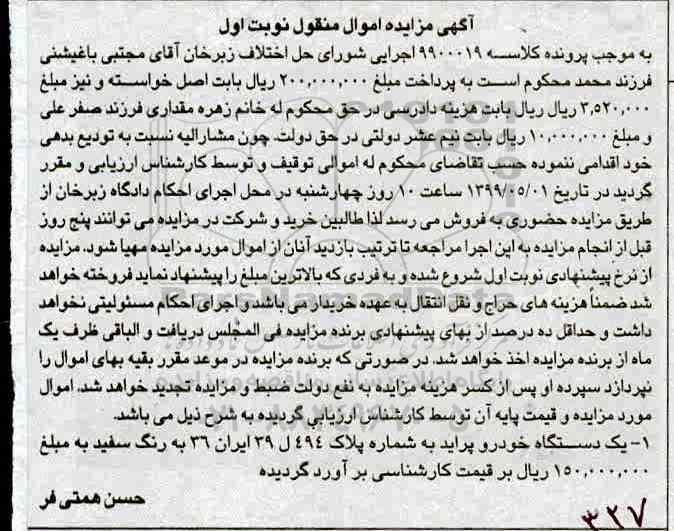 آگهی مزایده اموال منقول نوبت اول
به موجب پرونده کلاسه ۹۹۰۰۰۱۹ اجرایی شورای حل اختلاف زبرخان آقای مجتبی باغیشنی
فرزند محمد محکوم است به پرداخت مبلغ ۲۰۰,۰۰۰,۰۰۰ ریال بابت اصل خواسته و نیز مبلغ
۳,۵۲۰,۰۰۰ ریال ریال بابت هزینه دادرسی در حق محکوم له خانم زهره مقداری فرزند صفر علی
و مبلغ ۱۰,۰۰۰,۰۰۰ ریال بابت نیم عشر دولتی در حق دولت. چون مشارالیه نسبت به تودیع بدهی
خود اقدامی ننموده حسب تقاضای محکوم له اموالی توقیف و توسط کارشناس ارزیابی و مقرر
گردید در تاریخ ۱۳۹۹/۰۵/۰۱ ساعت ۱۰ روز چهارشنبه در محل اجرای احکام دادگاه زبرخان از
طریق مزایده حضوری به فروش می رسد لذا طالبین خرید و شرکت در مزایده می توانند پنج روز
قبل از انجام مزایده به این اجرا مراجعه تا ترتیب بازدید آنان از اموال مورد مزایده مهیا شود. مزایده
از نرخ پیشنهادی نوبت اول شروع شده و به فردی که بالاترین مبلغ را پیشنهاد نماید فروخته خواهد
شد ضمناً هزینه های حراج و نقل انتقال به عهده خریدار می باشد و اجرای احکام مسئولیتی نخواهد
داشت و حداقل ده درصد از بهای پیشنهادی برنده مزایده فی المجلس دریافت و الباقی ظرف یک
ماه از برنده مزایده اخذ خواهد شد. در صورتی که برنده مزایده در موعد مقرر بقیه بهای اموال را
نپردازد سپرده او پس از کسر هزینه مزایده به نفع دولت ضبط و مزایده تجدید خواهد شد. اموال
مورد مزایده و قیمت پایه آن توسط کارشناس ارزیابی گردیده به شرح ذیل می باشد.
۱- یک دستگاه خودرو پراید به شماره پلاک ۴۹۴ ل ۳۹ ایران ۳۶ به رنگ سفید به مبلغ
۱۵۰,۰۰۰,۰۰۰ ریال بر قیمت کارشناسی بر آورد گردیده
حسن همتی فر
۳۲۷